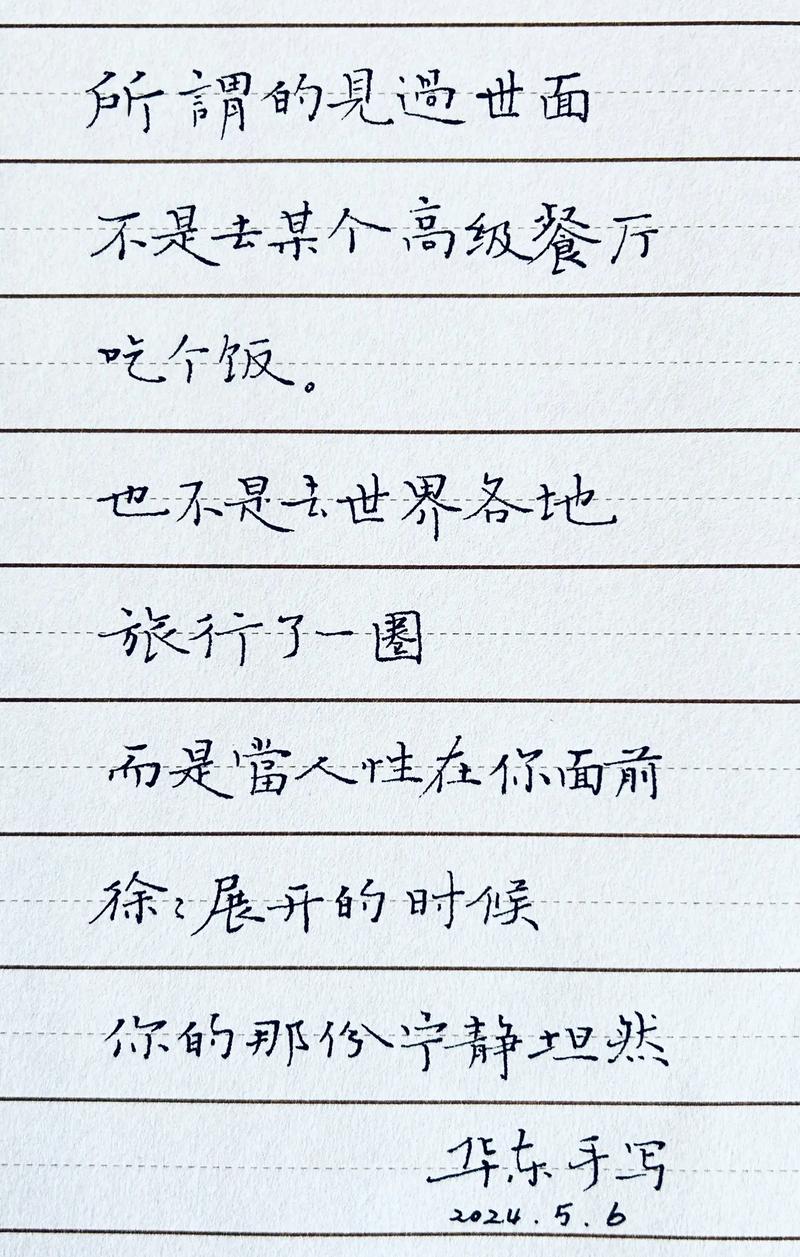 所謂的見過世面
不是去某个高级餐厅
吃个饭。
也不是去世界各地
旅行了一圈
而是當人性在你面前
徐々展开的时候
你的那份宁静坦然
华东手写
2024.5.6